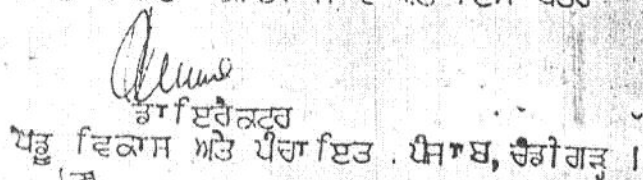 ਡਾਇਰੈਕਟਰ
ਪੇਂਡੂ ਵਿਕਾਸ ਅਤੇ ਪੰਚਾਇਤ . ਪੰਜਾਬ, ਚੰਡੀਗੜ੍ਹ ।